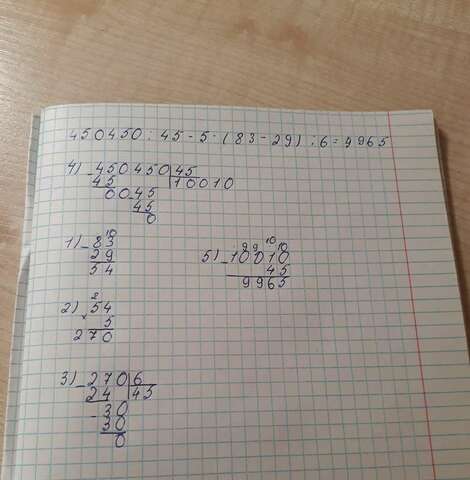 450450 : 45 - 5 · (83 - 29) : 6 = 9965
4) - 450450 | 45
45 10010
0045
- 45
0
1) - 83 10
29
54
5) - 10010 9 9 10 10
45
9965
2) × 54 2
5
270
3) - 270 | 6
24 45
- 30
30
0